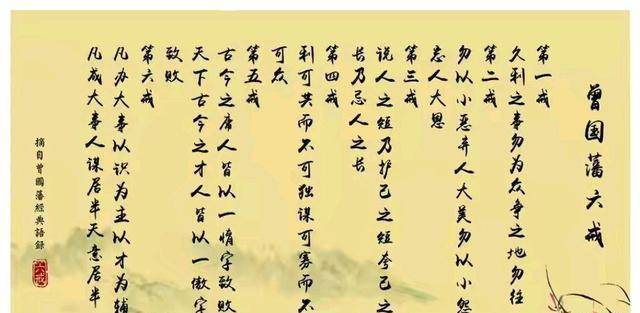 曾国藩六戒
第一戒
久利之事勿为众争之地勿往
第二戒
勿以小恶弃人大美勿以小怨
忘人大恩
第三戒
说人之短乃护己之短夸己之
长乃忌人之长
第四戒
利可共而不可独谋可寡而不
可众
第五戒
古今之庸人皆以一惰字致败
天下古今之才人皆以一傲字
致败
第六戒
凡办大事以识为主以才为辅
凡成大事人谋居半天意居半
摘自曾國藩經典語錄
六戒